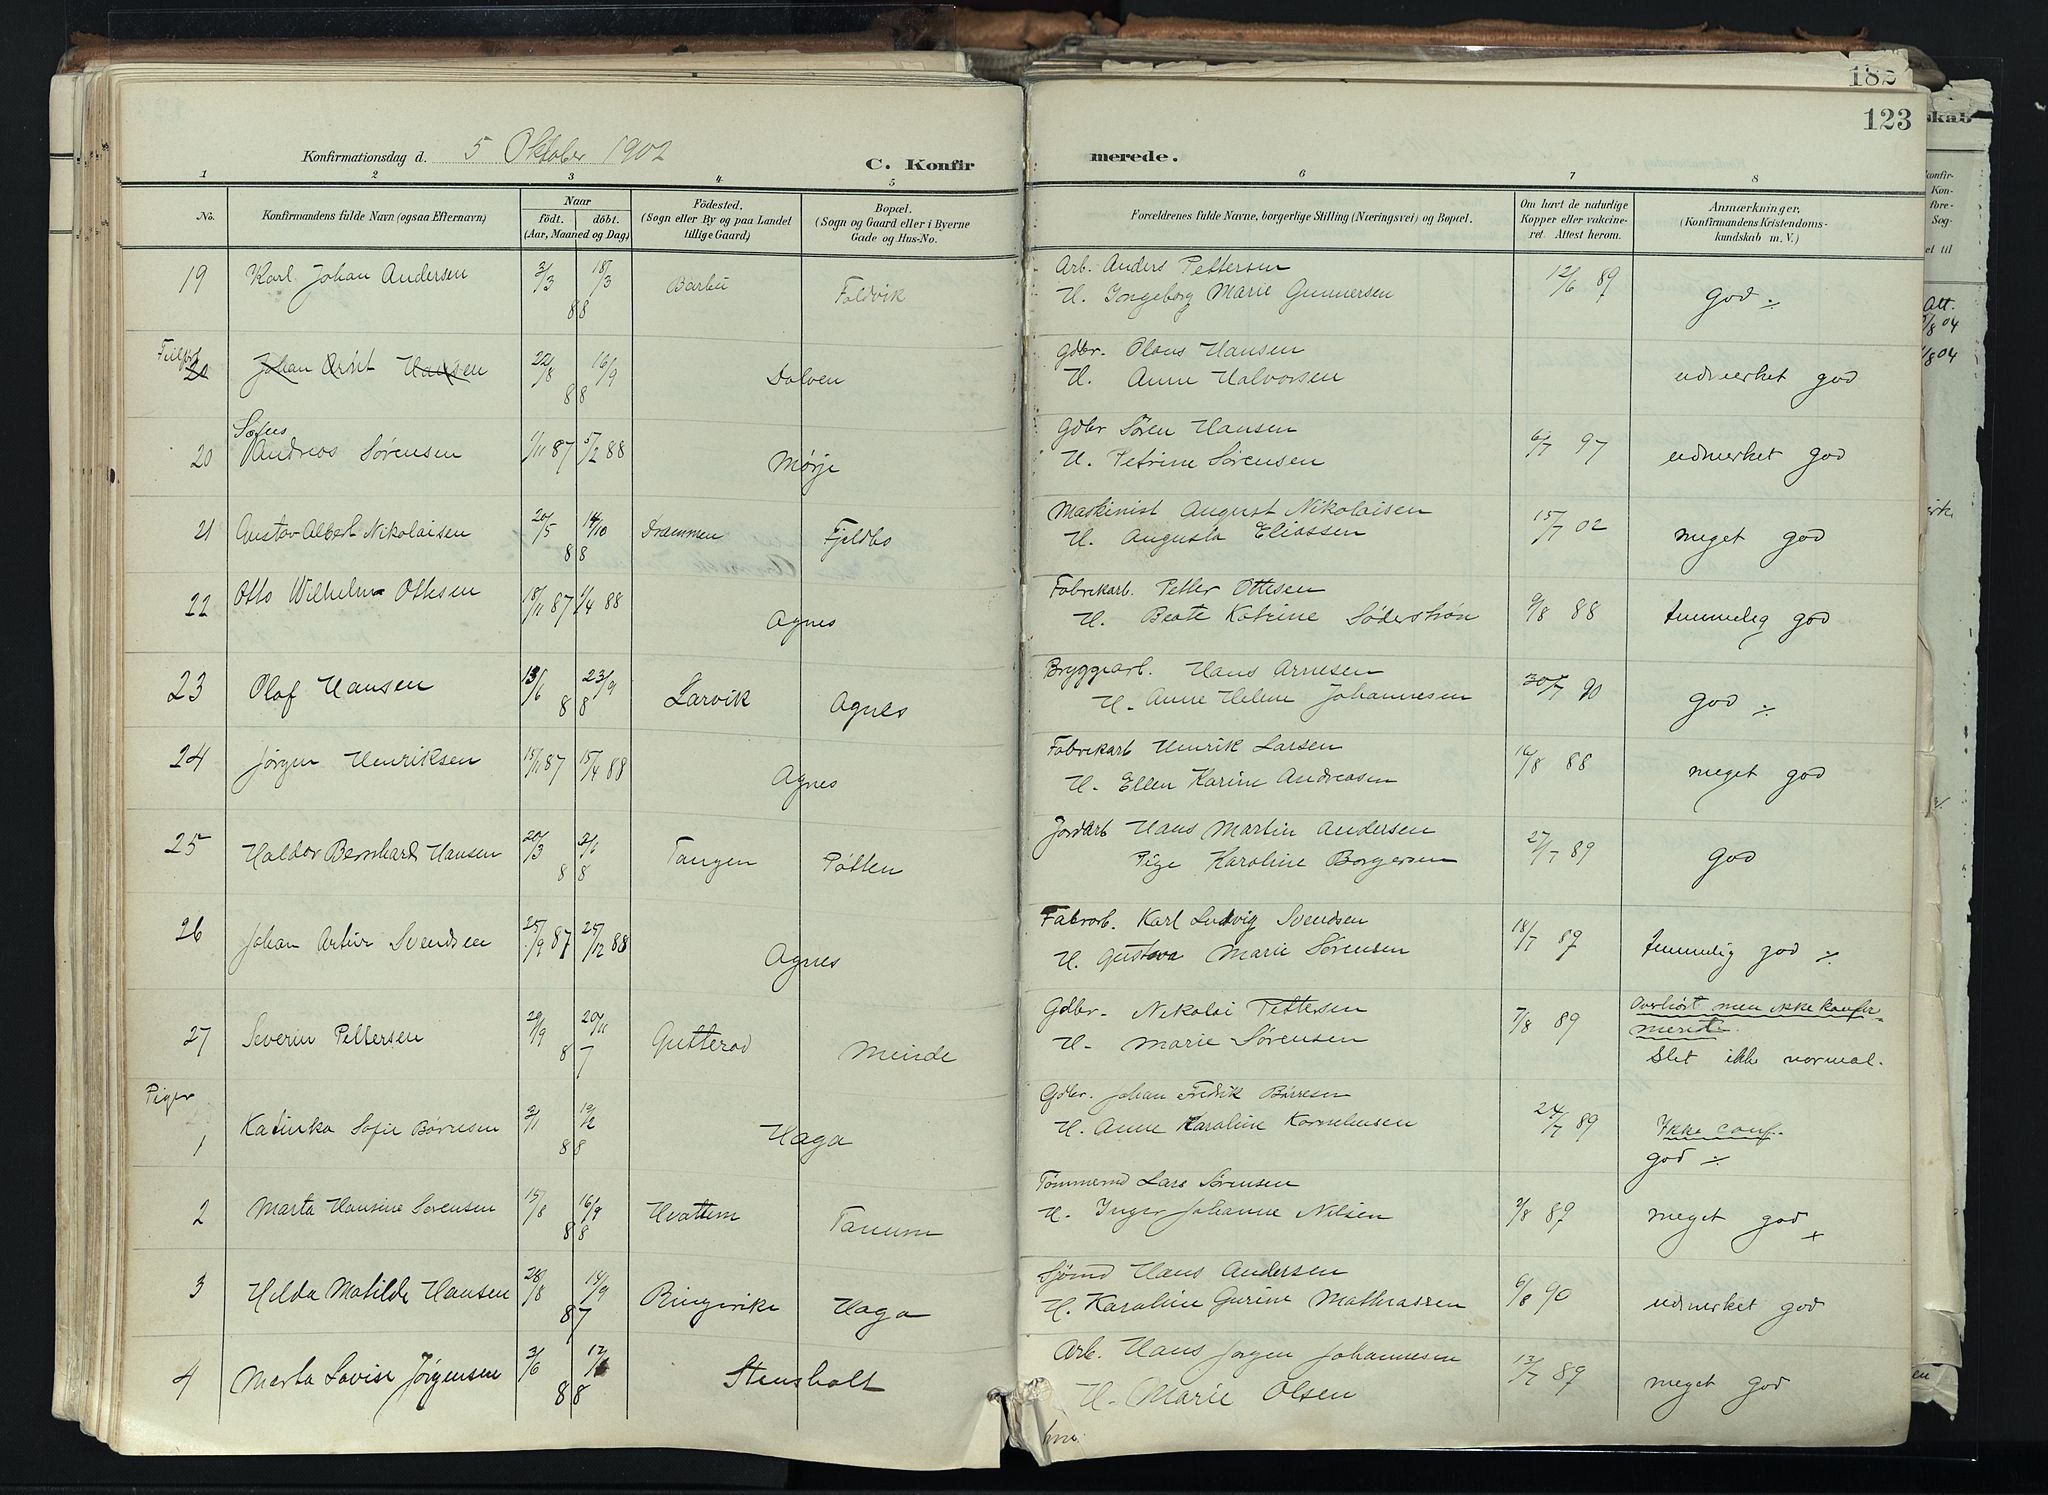 182
123
Konfirmationsdag d. 5 Oktober 1902
C. Konfirmerede.
1 2 3 4 5 6 7 8
No.
Konfirmandens fulde Navn (ogsaa Efternavn)
Naar
födt. döbt.
(Aar, Maaned og Dag)
Födested.
(Sogn eller By og paa Landet
tillige Gaard)
Bopæl.
(Sogn og Gaard eller i Byerne
Gade og Hus-No.
Forældrenes fulde Navne, borgerlige Stilling (Næringsvei) og Bopæl.
Om havt de naturlige
Kopper eller vakcine-
ret. Attest herom.
Anmærkninger,
(Konfirmandens Kristendoms-
kundskab m. V.)
19 Karl Johan Andersen 3/3 18/3 88 Barbu Foldvik
Arb. Anders Pettersen
H. Ingeborg Marie Gunnersen 12/6 89 god ./.
20 Johan Hansen 22/8 16/9 88 Dolven
Gdbr. Olaus Hansen
H. Anne Halvorsen udmerket god
Sofus
20 Andreas Sørensen 1/11 87 5/2 88 Mørje
Gdbr Søren Hansen
H. Petrine Sørensen 6/7 97 udmerket god
21 Gustav Albert Nikolaisen 20/5 14/10 88 Drammen Fjeldbo
Maskinist August Nikolaisen
H. Augusta Eliassen 15/7 02 meget god
22 Otto Wilhelm Ottesen 18/11 87 1/4 88 Agnes
Fabrikarb. Petter Ottesen
H. Beate Katrine Söderstrøn 9/8 88 temmelig god
23 Olaf Hansen 13/6 23/9 88 Larvik Agnes
Bryggearb. Hans Arnesen
H. Anne Helene Johannesen 30/7 90 god ./.
24 Jørgen Henriksen 15/11 87 15/4 88 Agnes
Fabrikarb Henrik Larsen
H. Ellen Karine Andreasen 16/8 88 meget god
25 Haldor Bernhard Hansen 20/3 88 Tangen Pøtten
Jordarb Hans Martin Andersen
Pige Karoline Borgersen 27/7 89 god
26 Johan Artur Svendsen 25/9 87 25/12 88 Agnes
Fabrarb. Karl Ludvig Svendsen
H. Gustava Marie Sørensen 18/7 89 temmelig god ./.
27 Severin Pettersen 29/9 20/11 87 Gutterød Meinde
Gdbr. Nikolai Pettersen
H. Marie Sørensen 7/8 89 Overhørt men ikke konfir-
meret.
Slet ikke normal.
Piger
1 Katinka Sofie Børresen 3/11 88 Haga
Gdbr. Johan Fredrik Børresen
H. Anne Karoline Korneliussen 24/7 89 Ikke conf.
god ./.
2 Marta Hansine Sørensen 15/8 16/9 88 Hvattum Tanum
Tømmermd Lars Sørensen
H. Inger Johanne Nilsen 2/8 89 meget god +
3 Hilda Matilde Hansen 28/8 14/9 87 Ringerike Haga
Sjømd Hans Andersen
H. Karoline Gurine Mathiassen 6/8 90 udmerket god
4 Marta Lovise Jørgensen 3/6 88 Stensholt
Arb. Hans Jørgen Johannesen
H. Marie Olsen 13/7 89 meget god